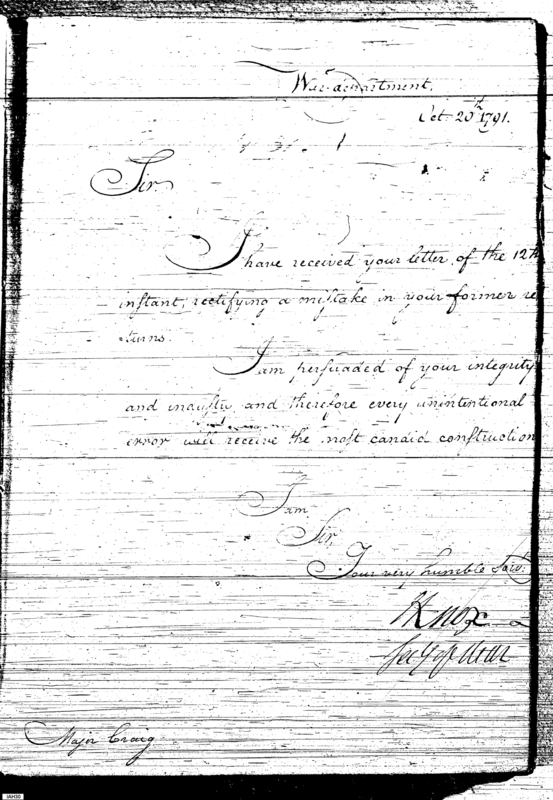 War department,
Oct 20th 1791.
Sir.
I have received your letter, of the 12th
instant, rectifying a mistake in your former re
turns.
I am persuaded of your integrity
and industry and therefore every unintentional
error will receive the most candid construction
I am
Sir,
Your very humble Serv:
H Knox
Secy of War
Major Craig
IAH30